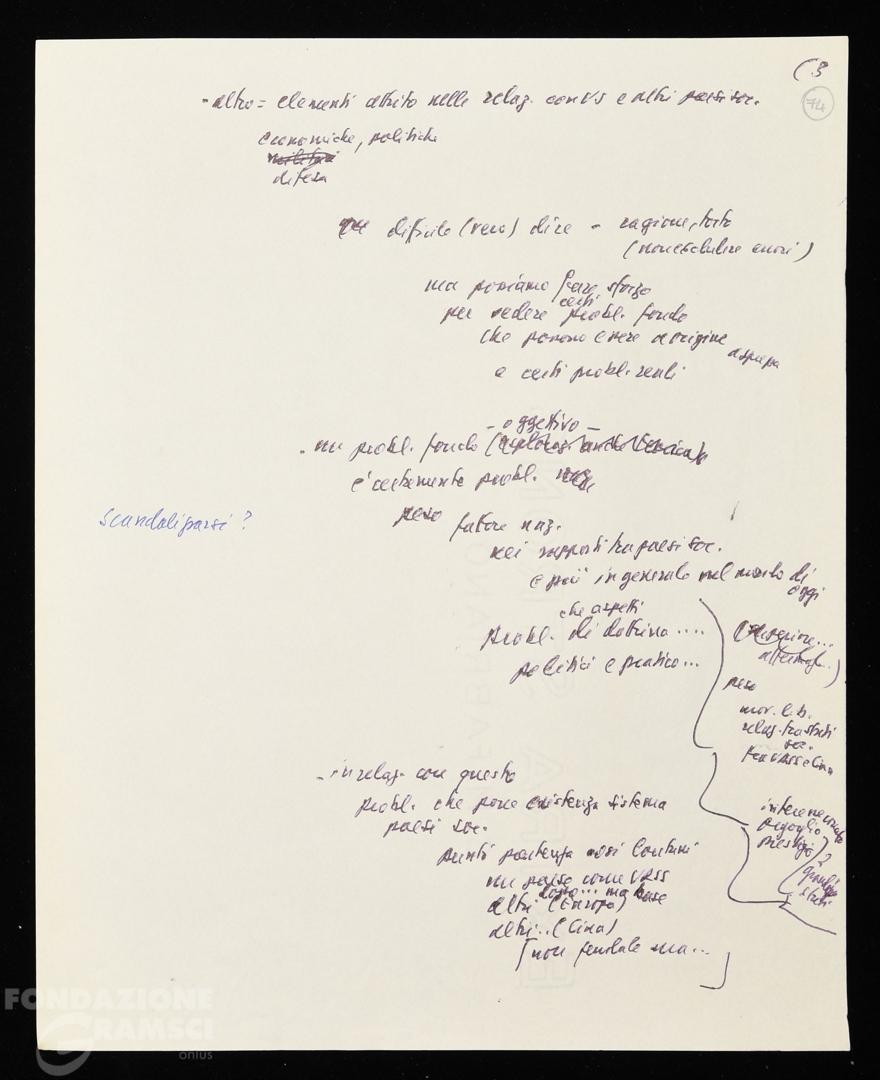 (3
74
- altro = elementi attrito nelle relaz. con US e altri paesi soc.
economiche, politiche
militari
difesa
difficile (vero) dire - ragione, torto
(non escludere errori)
ma possiamo fare sforzo
per vedere certi probl. fondo
che possono essere a origine
e certi probl. reali
- oggettivo -
- un probl. fondo
è certamente probl.
scandalizzarsi?
peso fattore naz.
nei rapporti tra paesi soc.
e più in generale nel mondo di
oggi
che aspetti
probl. di dottrina ....
politici e pratico...
peso
mov. c. h.
relaz. tra stati
soc.
tra URSS e Cina
interesse
orgoglio
prestigio ?
(grandi
stati
- in relaz. con questo
probl. che pone esistenza sistema
paesi soc.
punti partenza così lontani
un paese come URSS
dopo... ma base
altri (Europa)
altri.. (Cina)
[non feudale ma...]
FONDAZIONE
GRAMSCI
onlus